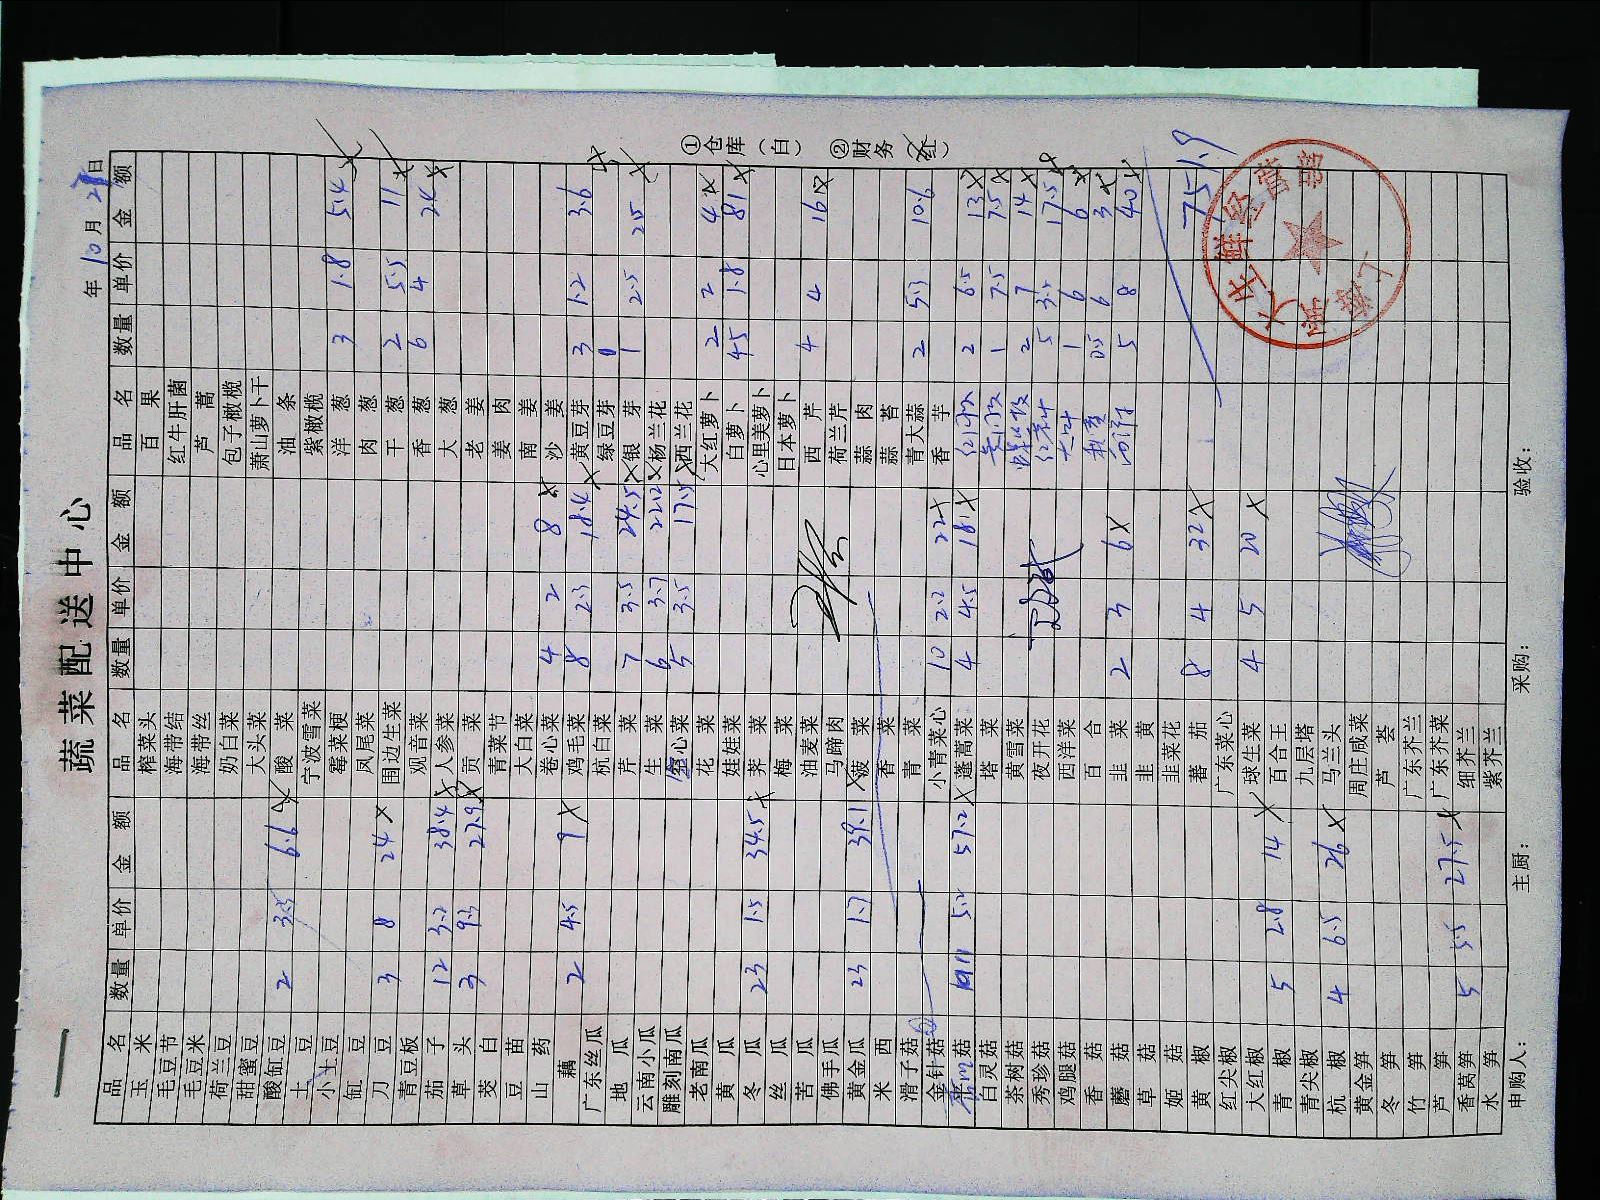 蔬菜配送中心
年 10 月 28 日
品名 数量 单价 金额 品名 数量 单价 金额 品名 数量 单价 金额
玉米 榨菜头 百果
毛豆节 海带结 红牛肝菌
毛豆米 海带丝 芦蒿
荷兰豆 奶白菜 包子橄榄
甜蜜豆 大头菜 萧山萝卜干
酸缸豆 2 3.3 6.6 酸菜 油条
土豆 宁波雪菜 紫橄榄
小土豆 霉菜梗 洋葱 3 1.8 5.4
缸豆 凤尾菜 肉葱
刀豆 3 8 24 围边生菜 干葱 2 5.5 11
青豆板 观音菜 香葱 6 4 24
茄子 12 3.2 38.4 人参菜 大葱
草头 3 9.3 27.9 贡菜 老姜
茭白 青菜节 姜肉
豆苗 大白菜 南姜
山药 卷心菜 4 2 8 沙姜
藕 2 4.5 9 鸡毛菜 8 2.3 18.4 黄豆芽 3 1.2 3.6
广东丝瓜 杭白菜 绿豆芽
地瓜 芹菜 7 3.5 24.5 银芽 1 2.5 25
云南小瓜 生菜 6 3.7 22.2 杨兰花
雕刻南瓜 空心菜 5 3.5 17.5 西兰花
老南瓜 花菜 大红萝卜 2 2 4
黄瓜 娃娃菜 白萝卜 45 1.8 81
冬瓜 23 1.5 34.5 荠菜 心里美萝卜
丝瓜 梅菜 日本萝卜
苦瓜 油麦菜 西芹 4 4 16
佛手瓜 马蹄肉 荷兰芹
黄金瓜 23 1.7 39.1 菠菜 蒜肉
米西 香菜 蒜苔
滑子菇 青菜 青大蒜 2 5.3 10.6
金针菇 小青菜心 10 2.2 22 香芋
菇 11 5.2 57.2 蓬蒿菜 4 4.5 18 2 6.5 13
白灵菇 塔菜 1 7.5 7.5
茶树菇 黄雪菜 2 7 14
秀珍菇 夜开花 5 3.5 17.5
鸡腿菇 西洋菜 1 6 6
香菇 百合 0.5 6 3
蘑菇 韭菜 2 3 6 5 8 40
草菇 韭黄
姬菇 韭菜花
黄椒 蕃茄 8 4 32 751.9
红尖椒 广东菜心
大红椒 球生菜 4 5 20
青椒 5 2.8 14 百合王
青尖椒 九层塔
杭椒 4 6.5 26 马兰头
黄金笋 周庄咸菜
冬笋 芦荟
竹笋 广东芥兰
芦笋 广东芥菜
香莴笋 5 5.5 27.5 细芥兰
水笋 紫芥兰
申购人： 主厨： 采购： 验收：
①仓库（白） ②财务（红）